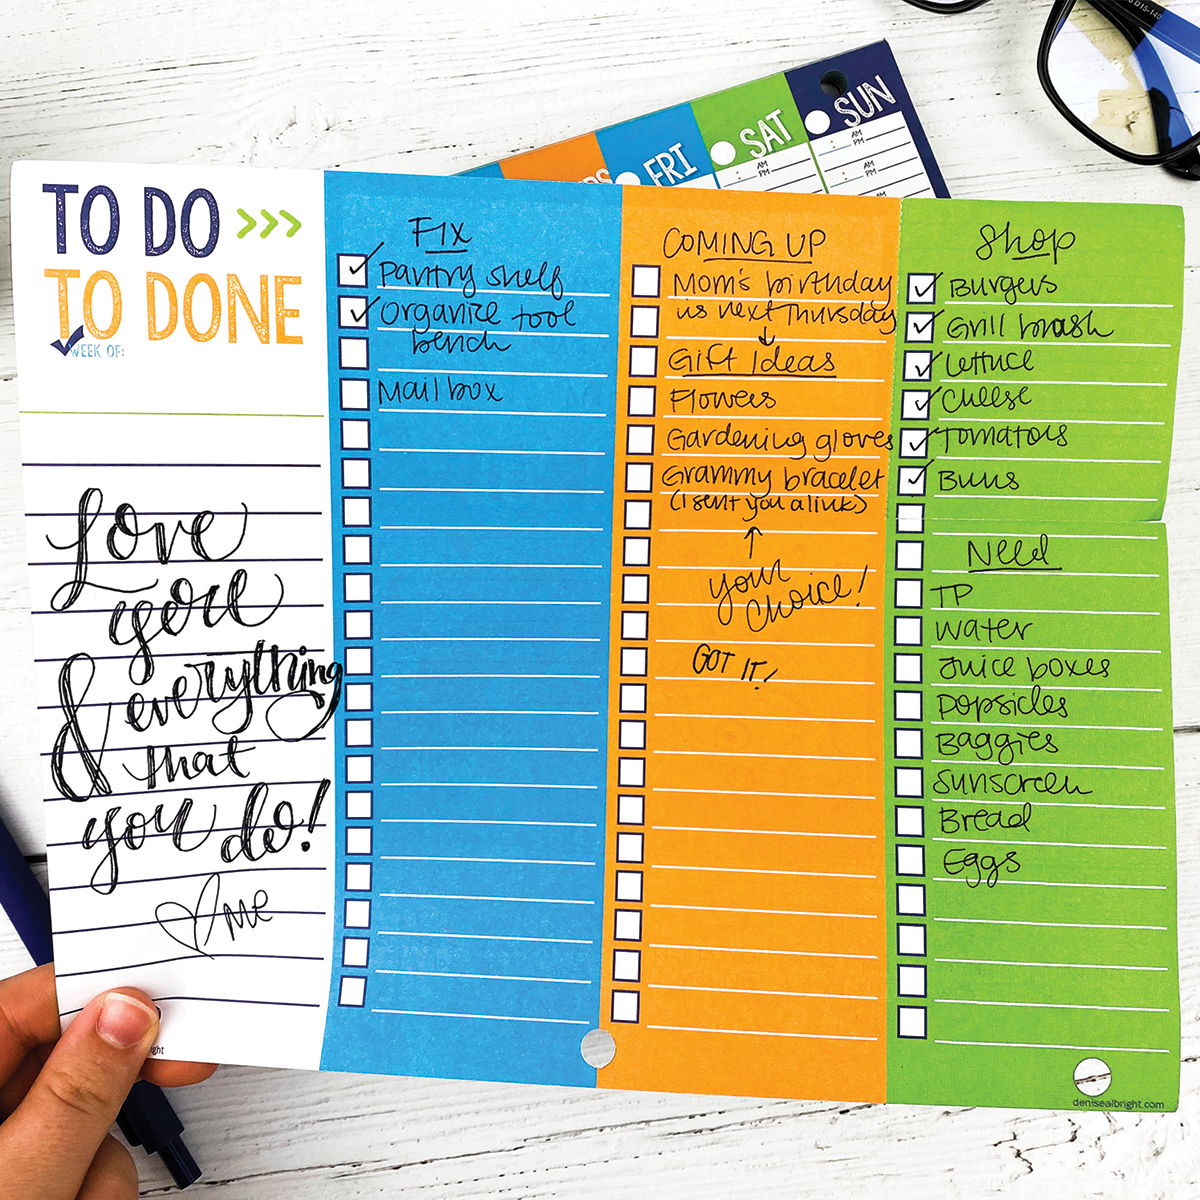 TO DO >>>
TO DONE
WEEK OF:
Love
you
& everything
that
you do!
me
Fix
Pantry shelf
Organize tool
bench
Mail box
COMING UP
Mom's birthday
is next Thursday
Gift Ideas
Flowers
Gardening gloves
Grammy bracelet
(I sent you a link)
your
choice!
GOT IT!
Shop
Burgers
Grill brush
Lettuce
Cheese
Tomatoes
Buns
Need
TP
Water
Juice boxes
Popsicles
Baggies
Sunscreen
Bread
Eggs
denisealbright.com
FRI
SAT
AM
PM
AM
PM
SUN
AM
PM
AM
PM